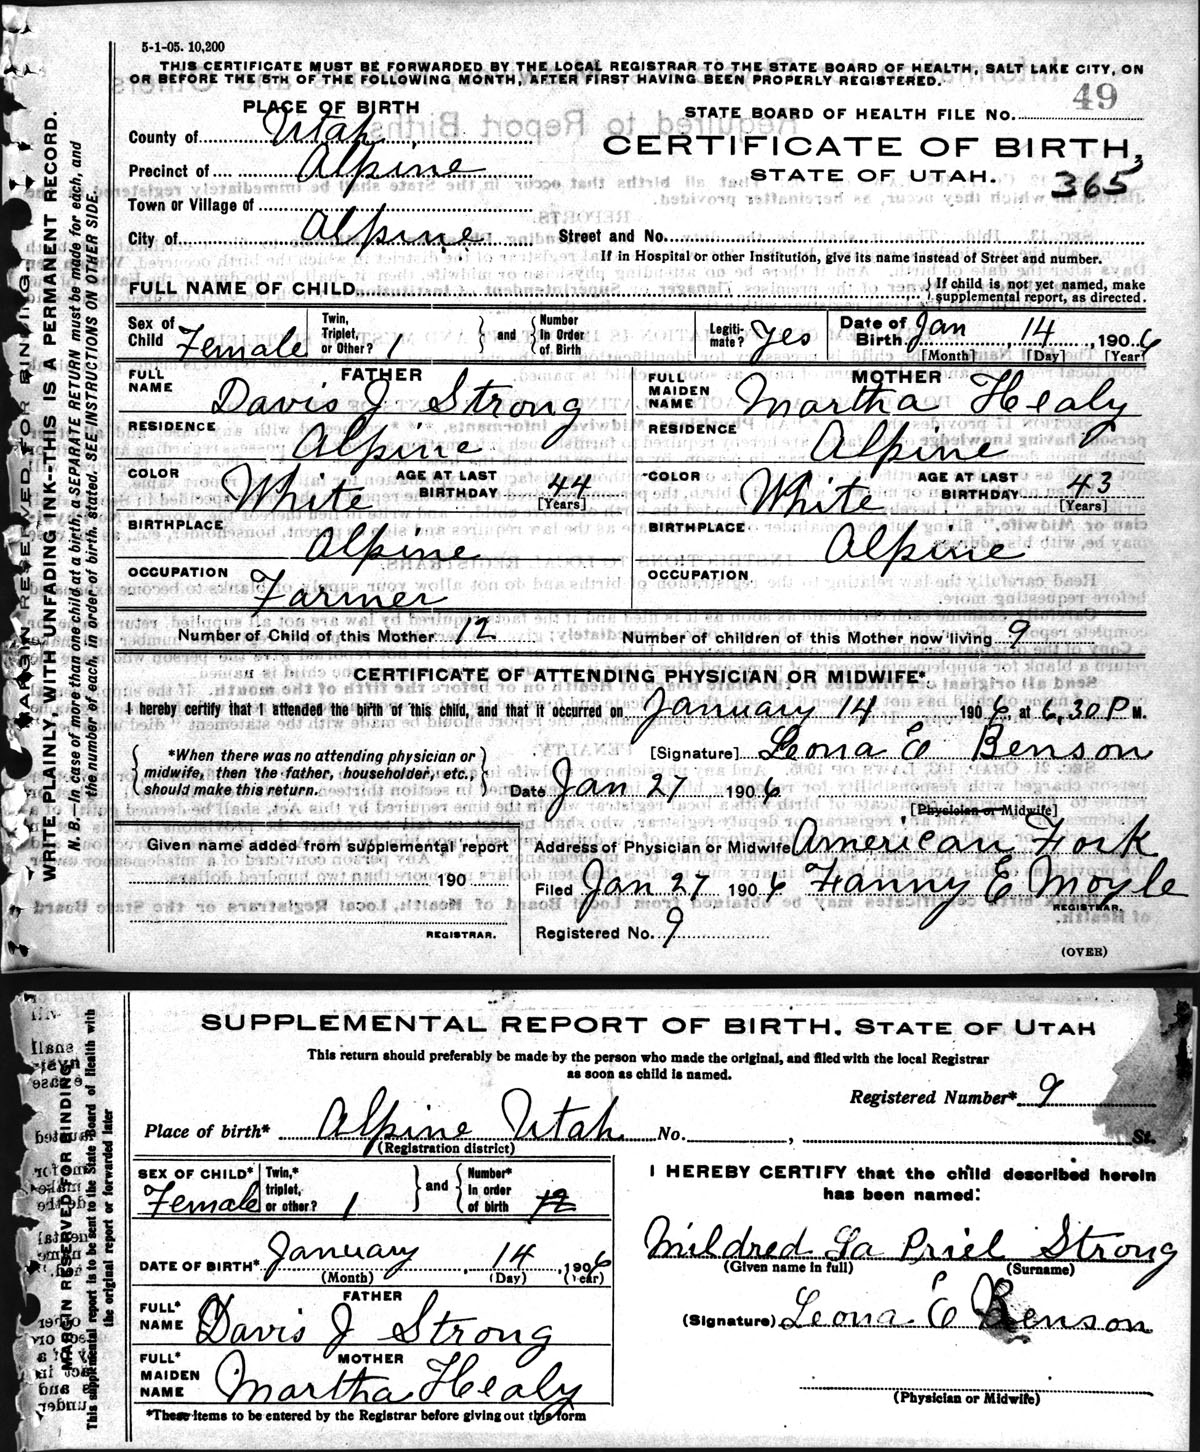 5-1-05. 10,200
THIS CERTIFICATE MUST BE FORWARDED BY THE LOCAL REGISTRAR TO THE STATE BOARD OF HEALTH, SALT LAKE CITY, ON
OR BEFORE THE 5TH OF THE FOLLOWING MONTH, AFTER FIRST HAVING BEEN PROPERLY REGISTERED.
PLACE OF BIRTH
STATE BOARD OF HEALTH FILE NO. 49
County of Utah
CERTIFICATE OF BIRTH,
Precinct of Alpine
STATE OF UTAH. 365
Town or Village of
City of Alpine Street and No.
If in Hospital or other Institution, give its name instead of Street and number.
FULL NAME OF CHILD
If child is not yet named, make
supplemental report, as directed.
Sex of Child Female
Twin, Triplet, or Other? 1 and Number in Order of Birth
Legiti-mate? Yes
Date of Birth Jan 14, 1906
[Month] [Day] [Year]
FATHER
FULL NAME Davis J Strong
RESIDENCE Alpine
COLOR White AGE AT LAST BIRTHDAY 44 [Years]
BIRTHPLACE Alpine
OCCUPATION Farmer
MOTHER
FULL MAIDEN NAME Martha Healy
RESIDENCE Alpine
COLOR White AGE AT LAST BIRTHDAY 43 [Years]
BIRTHPLACE Alpine
OCCUPATION
Number of Child of this Mother 12 Number of children of this Mother now living 9
CERTIFICATE OF ATTENDING PHYSICIAN OR MIDWIFE*
I hereby certify that I attended the birth of this child, and that it occurred on January 14 1906, at 6,30 P M.
*When there was no attending physician or
midwife, then the father, householder, etc.,
should make this return.
[Signature] Leona E Benson
Date Jan 27 1906
[Physician or Midwife]
Given name added from supplemental report
190
REGISTRAR.
Address of Physician or Midwife American Fork
Filed Jan 27 1906 Fanny E Moyle
REGISTRAR.
Registered No. 9
(OVER)
MARGIN RESERVED FOR BINDING.
WRITE PLAINLY, WITH UNFADING INK--THIS IS A PERMANENT RECORD.
N. B.—In case of more than one child at a birth, a SEPARATE RETURN must be made for each, and
the number of each, in order of birth, stated. SEE INSTRUCTIONS ON OTHER SIDE.
SUPPLEMENTAL REPORT OF BIRTH, STATE OF UTAH
This return should preferably be made by the person who made the original, and filed with the local Registrar
as soon as child is named.
Registered Number* 9
Place of birth* Alpine Utah No. , St.
(Registration district)
SEX OF CHILD* Female
Twin,* triplet, or other? 1 and Number* in order of birth 12
DATE OF BIRTH* January 14, 1906
(Month) (Day) (Year)
FATHER
FULL* NAME Davis J Strong
MOTHER
FULL* MAIDEN NAME Martha Healy
*These items to be entered by the Registrar before giving out this form
I HEREBY CERTIFY that the child described herein
has been named:
Mildred La Priel Strong
(Given name in full) (Surname)
(Signature) Leona E Benson
(Physician or Midwife)
MARGIN RESERVED FOR BINDING
This supplemental report is to be sent to the State Board of Health with
the original report or forwarded later